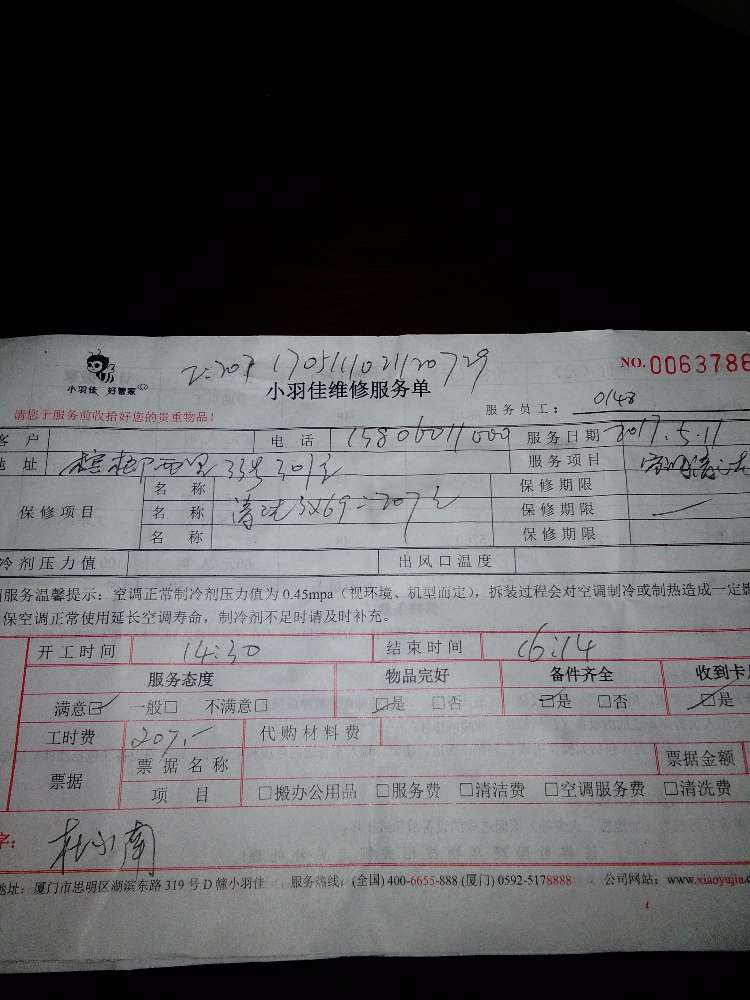 小羽佳 好管家
170511102120729
NO. 0063786
小羽佳维修服务单
请您于服务前收拾好您的贵重物品!
服务员工: 0148
客 户 电 话 服务日期 2017.5.11
地 址 服务项目
名 称 保修期限
保修项目 名 称 清洗3×69=207元 保修期限
名 称 保修期限
冷剂压力值 出风口温度
服务温馨提示:空调正常制冷剂压力值为 0.45mpa(视环境、机型而定),拆装过程会对空调制冷或制热造成一定
保空调正常使用延长空调寿命,制冷剂不足时请及时补充。
开工时间 14:30 结束时间 16:14
服务态度 物品完好 备件齐全 收到卡
满意☑ 一般□ 不满意□ ☑是 □否 ☑是 □否 ☑是
工时费 207.- 代购材料费
票据 票据名称 票据金额
项 目 □搬办公用品 □服务费 □清洁费 □空调服务费 □清洗费
字:
地址:厦门市思明区湖滨东路 319 号 D 幢小羽佳 服务热线:(全国) 400-6655-888 (厦门) 0592-5178888 公司网站:www.xiaoyujia.c